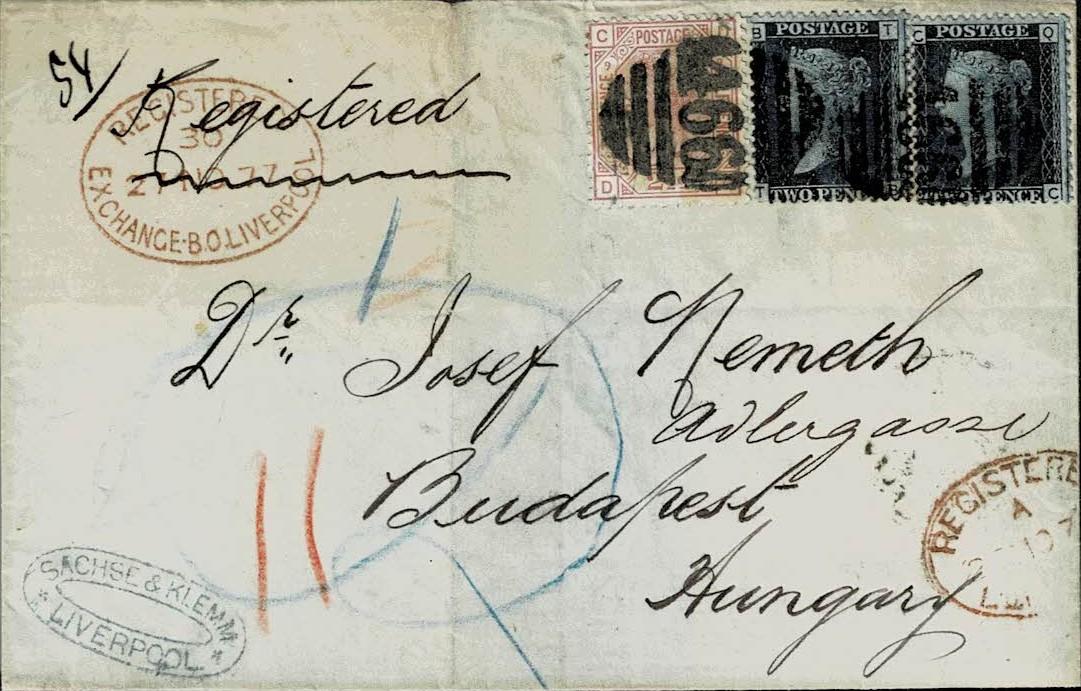 54/
Registered
REGISTERED
30
NO 77
EXCHANGE·B.O.LIVERPOOL
C POSTAGE D
D
466
B POSTAGE T
T TWO PENCE B
C POSTAGE Q
TWO PENCE C
466
Dr.
Josef Nemeth
Adlergasse
Budapest
Hungary
REGISTERED
A
SACHSE & KLEMM
* LIVERPOOL *